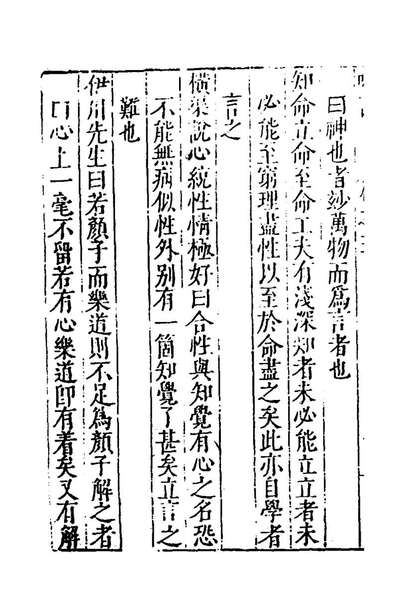 曰神也者妙萬物而爲言者也
知命立命至命工夫有淺深知者未必能立立者未
必能至窮理盡性以至於命盡之矣此亦自學者
言之
橫渠說心統性情極好曰合性與知覺有心之名恐
不能無病似性外別有一箇知覺了甚矣立言之
難也
伊川先生曰若顏子而樂道則不足爲顏子解之者
曰心上一毫不留若有心樂道卽有着矣又有解